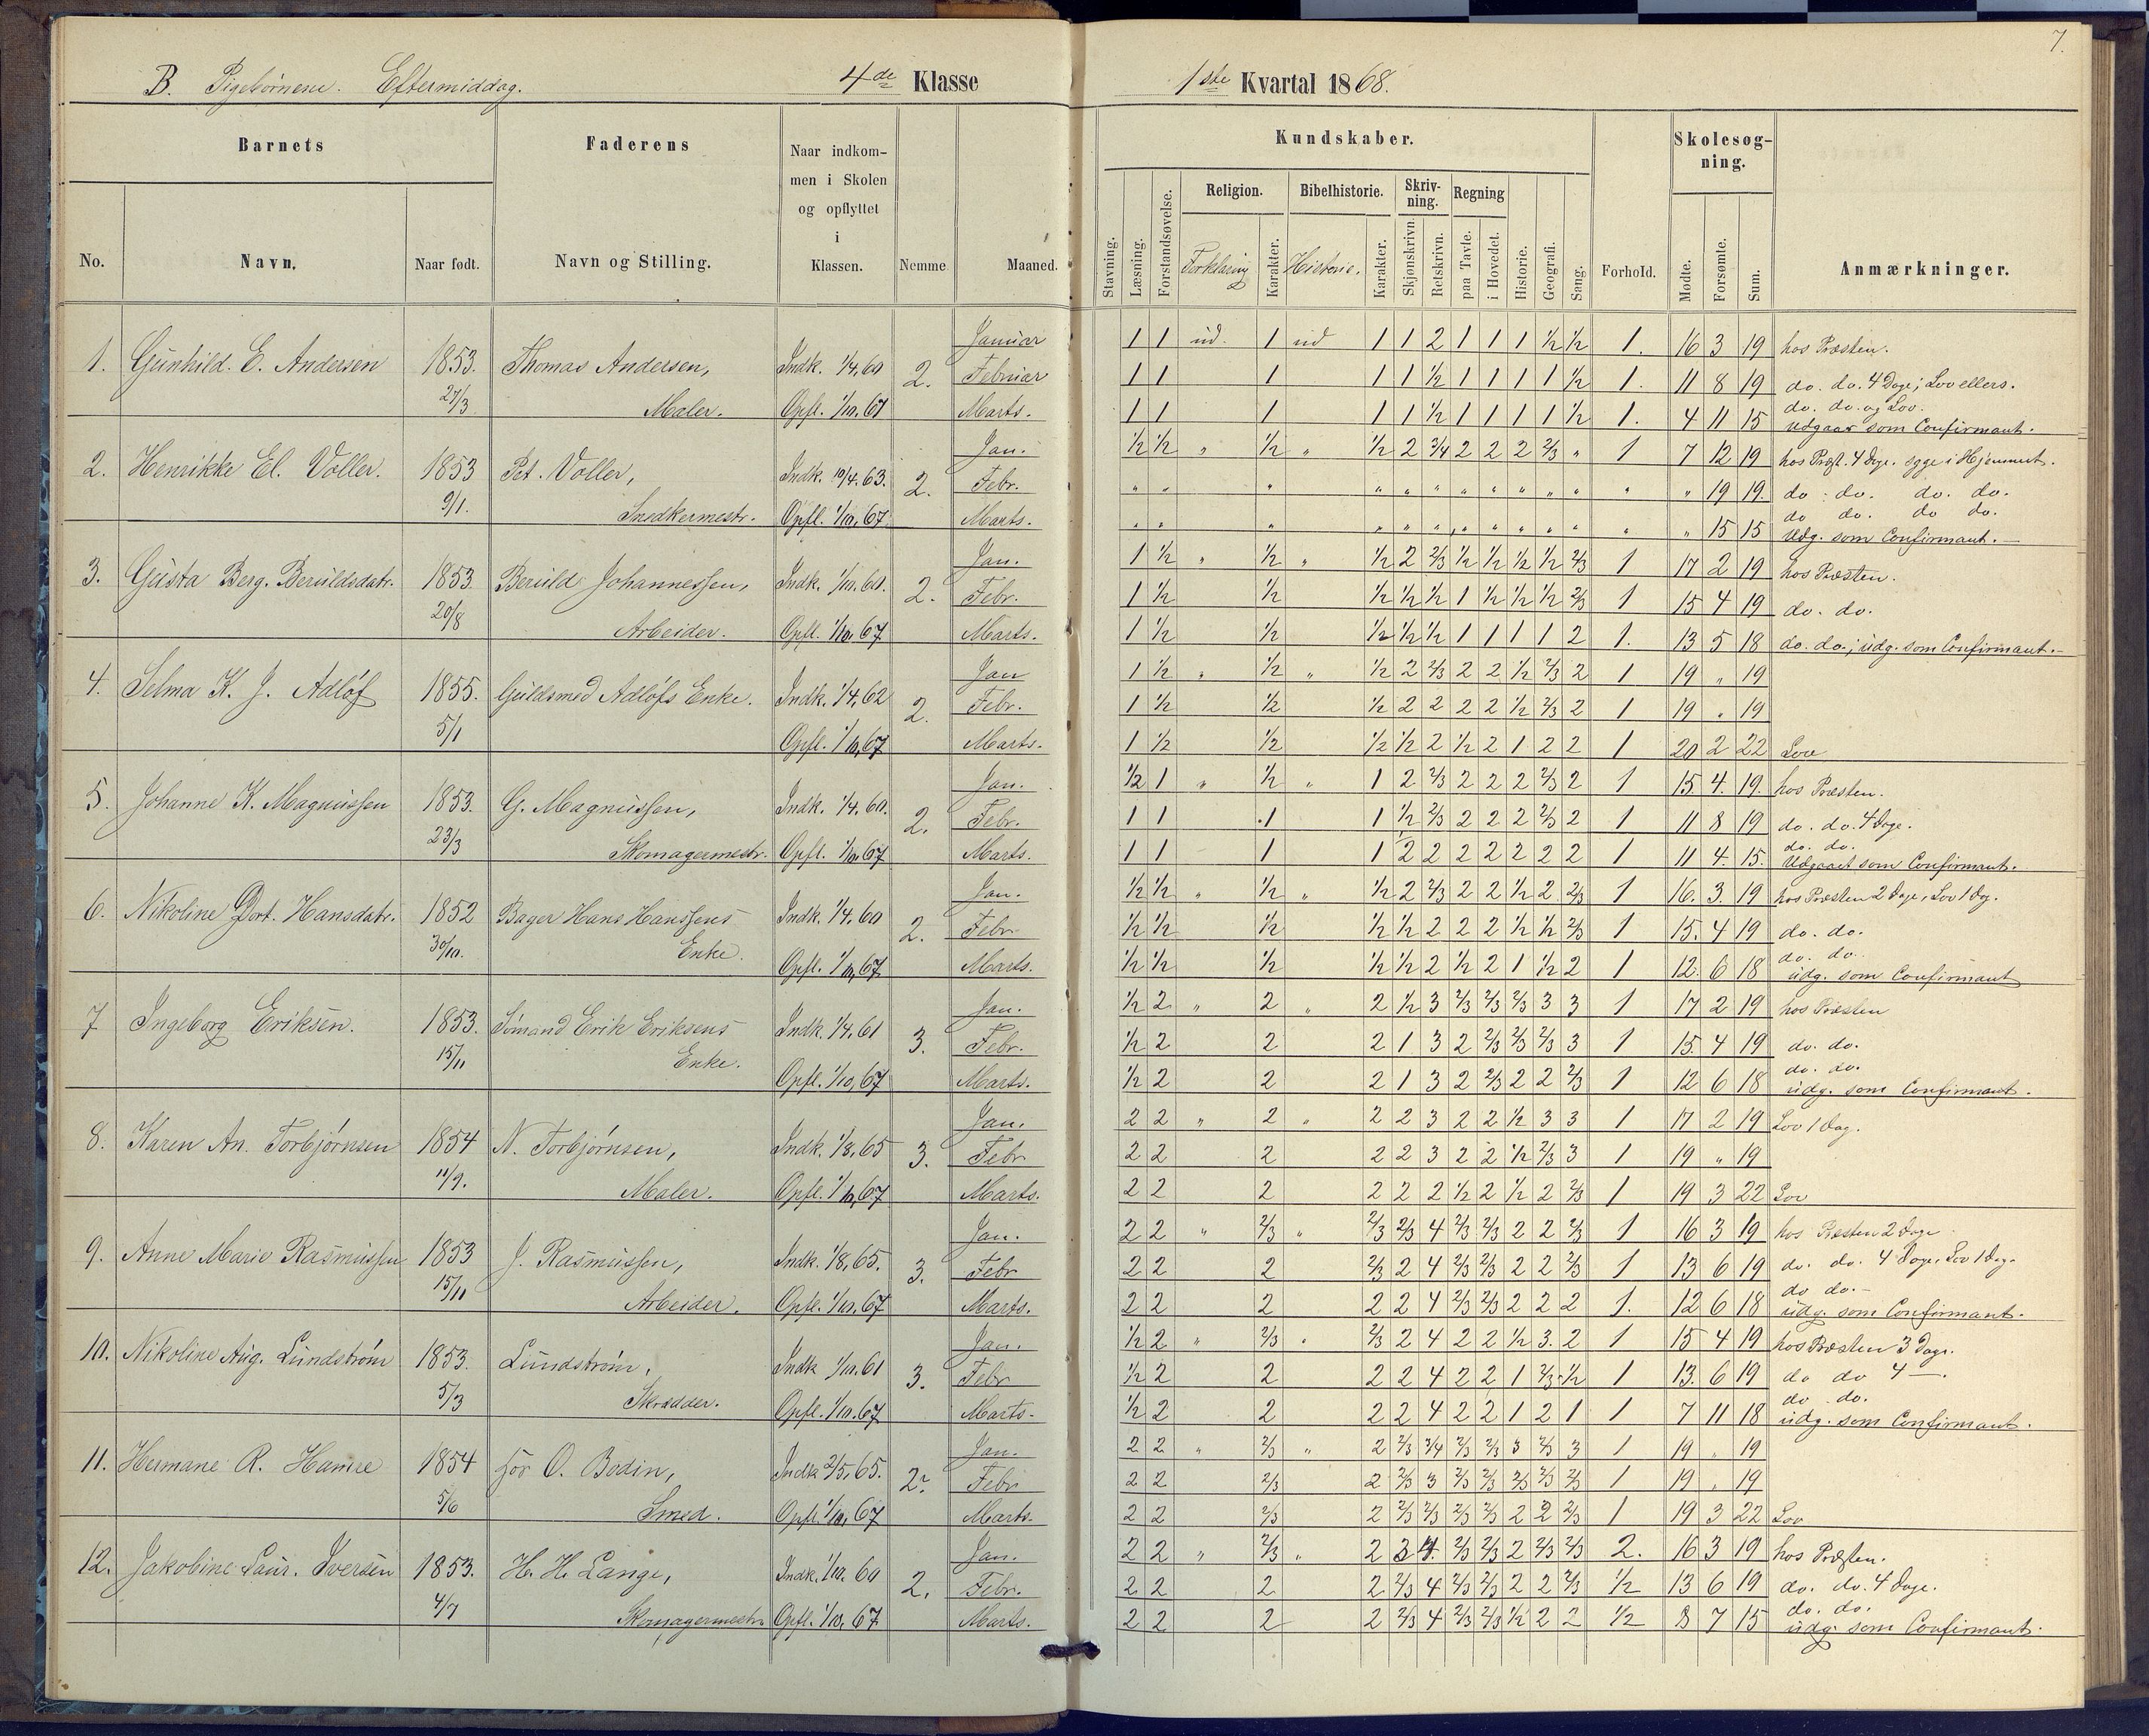 7.
B. Pigebørnene. Eftermiddag. 4de Klasse 1ste Kvartal 1868.
Barnets Faderens Naar indkommen i Skolen og opflyttet i Klassen. Nemme. Maaned. Kundskaber. Forhold. Skolesøgning. Anmærkninger.
No. Navn. Naar født. Navn og Stilling.
Stavning. Læsning. Forstandsøvelse. Religion. Forklaring Karakter. Bibelhistorie. Historie. Karakter. Skrivning. Skjønskrivn. Retskrivn. Regning paa Tavle. i Hovedet. Historie. Geografi. Sang. Mødte. Forsømte. Sum.
Januar 1 1 ud. 1 ud 1 1 2 1 1 1 ½ ½ 1. 16 3 19 hos Præsten.
1. Gunhild. E. Andersen 1853. 27/3 Thomas Andersen, Indk. 1/4, 60 2. Februar 1 1 1 1 1 ½ 1 1 1 1 ½ 1. 11 8 19 do. do. 4 Dage; Lov ellers.
Maler. Opfl. 1/10. 67 Marts. 1 1 1 1 1 ½ 1 1 1 1 ½ 1. 4 11 15 do. do. og Lov. Udgaar som Confirmant.
Jan. ½ ½ " ½ " ½ 2 3/4 2 2 2 2/3 " 1 7 12 19 hos Præst. 4 Dage. syge i Hjemmet.
2. Henrikke El. Voller. 1853 9/1. Pet. Voller, Indk. 10/4. 63. 2. Febr. " " " " " " " " " " " " " 19 19. do. do. do. do.
Snedkermestr. Opfl. 1/10, 67 Marts. " " " " " " " " " " " " " 15 15 do do. do do. Udg. som Confirmant.
Jan. 1 ½ " ½ " ½ 2 2/3 ½ ½ ½ ½ 2/3 1 17 2 19 hos Præsten.
3. Gusta Berg. Beruldsdatr. 1853 20/8 Beruld Johannessen, Indk. 1/10. 60. 2. Febr. 1 ½ ½ ½ ½ ½ 1 ½ ½ ½ 2/3 1 15 4 19 do. do.
Arbeider. Opfl. 1/10. 67 Marts. 1 ½ ½ ½ ½ ½ 1 1 1 1 2 1. 13 5 18 do. do.; udg. som Confirmant.
Jan 1 ½ " ½ " ½ 2 2/3 2 2 ½ 2/3 2 1 19 " 19
4. Selma K. J. Adløf 1855. 5/1 Guldsmed Adløfs Enke. Indk. 1/4, 62 2. Febr. 1 ½ ½ ½ 2 2 2 2 ½ 2/3 2 1 19 " 19
Opfl. 1/10, 67 Marts. 1 ½ ½ ½ ½ 2 ½ 2 1 2 2 1 20 2 22 Lov
Jan. ½ 1 " ½ " 1 2 2/3 2 2 2 2/3 2 1 15. 4. 19. hos Præsten.
5. Johanne K. Magnussen 1853. 23/3 G. Magnussen, Indk. 1/4, 60. 2. Febr. 1 1 1 1 ½ 2/3 2 2 2 2/3 2 1 11 8 19 do. do. 4 Dage.
Skomagermestr. Opfl. 1/10. 67 Marts. 1 1 1 1 ½ 2 2 2 2 2 2 1 11 4. 15. do. do. Udgaaet som Confirmant.
Jan. ½ ½ " ½ " ½ 2 2/3 2 2 ½ 2 2/3 1 16. 3. 19 hos Præsten 2 Dage, Lov 1 Dag.
6. Nikoline Dort. Hansdatr. 1852 30/10. Bager Hans Hanssens Indk. 1/4. 60 2. Febr ½ ½ ½ ½ ½ 2 2 2 ½ ½ 2/3 1 15. 4 19 do. do.
Enke. Opfl. 1/10, 67 Marts. ½ ½ ½ ½ ½ 2 ½ 2 1 ½ 2 1 12. 6 18 do. do. udg. som Confirmant
Jan. ½ 2 " 2 " 2 ½ 3 2/3 2/3 2/3 3 3 1 17 2 19 hos Præsten
7 Ingeborg Eriksen. 1853. 15/11 Sømand Erik Eriksens Indk. 1/4. 61 3. Febr. ½ 2 2 2 1 3 2 2/3 2/3 2/3 3 1 15. 4 19 do. do.
Enke. Opfl. 1/10, 67 Marts. ½ 2 2 2 1 3 2 2/3 2 2 2/3 1 12 6 18 do. do. udg. som Confirmant.
Jan. 2 2 " 2 " 2 2 3 2 2 ½ 3 3 1 17 2 19 Lov 1 Dag.
8. Karen An. Torbjørnsen 1854 11/9. N. Torbjørnsen, Indk. 1/8, 65 3. Febr 2 2 2 2 2 3 2 2 ½ 2/3 3 1 19 " 19
Maler. Opfl. 1/10, 67 Marts. 2 2 2 2 2 2 ½ 2 ½ 2 2/3 1 19 3 22 Lov
Jan. 2 2 " 2/3 " 2/3 2/3 4 2/3 2/3 2 2 2/3 1 16 3 19 hos Præsten 2 Dage
9. Anne Marie Rasmussen 1853 15/11 J. Rasmussen, Indk. 1/8, 65. 3. Febr 2 2 2 2/3 2 4 2/3 2/3 2 2 2/3 1 13 6 19 do. do. 4 Dage, Lov 1 Dag.
Arbeider. Opfl. 1/10. 67 Marts. 2 2 2 2 2 4 2/3 2/3 2 2 2 1. 12 6 18 do do. udg. som Confirmant.
Jan. ½ 2 " 2/3 " 2/3 2 4 2 2 ½ 3. 2 1 15 4 19 hos Præsten 3 Dage.
10. Nikoline Aug. Lundstrøm 1853. 5/3 Lundstrøm, Indk 1/10. 61 3. Febr ½ 2 2 2 2 4 2 2 1 2/3 ½ 1 13. 6 19 do do 4 —.
Skrædder. Opfl. 1/10. 67 Marts. ½ 2 2 2 2 4 2 2 1 2 1 1 7 11 18 do. do. udg. som Confirmant.
Jan. 2 2 " 2/3 " 2 2/3 3/4 2/3 2/3 3 2/3 3 1 19 " 19
11. Hermane R. Hamre 1854 5/6 for O. Bodin, Indk 2/5, 65. 2. Febr 2 2 2/3 2 2/3 3 2/3 2/3 2/3 2/3 2/3 1 19 " 19
Smed. Opfl. 1/10, 67 Marts. 2 2 2/3 2 2/3 2/3 2/3 2/3 2 2 2/3 1 19 3 22 Lov
Jan. 2 2 " 2/3 " 2 3 4. 2/3 2/3 2 2/3 2/3 2. 16 3 19 hos Præsten.
12. Jakobine Laur. Iversen 1853. 4/7 H. H. Lange, Indk. 1/10. 60 2. Febr. 2 2 2 2 2/3 4 2/3 2/3 2 2 2/3 ½ 13 6 19 do. do. 4 Dage.
Skomagermestr. Opfl. 1/10, 67 Marts. 2 2 2 2 2/3 4 2/3 2/3 ½ 2 2 ½ 8 7 15 do. do. udg. som Confirmant.